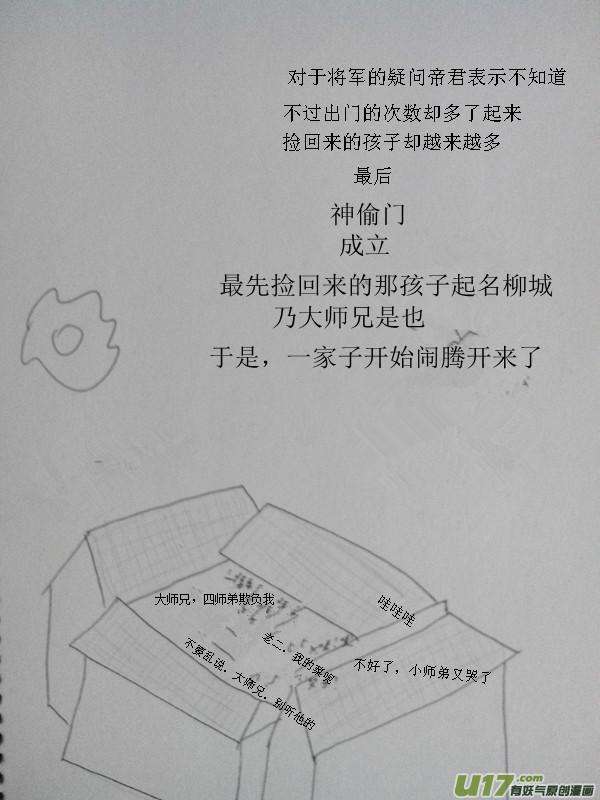 对于将军的疑问帝君表示不知道
不过出门的次数却多了起来
捡回来的孩子却越来越多
最后
神偷门
成立
最先捡回来的那孩子起名柳城
乃大师兄是也
于是，一家子开始闹腾开来了
大师兄，四师弟欺负我
哇哇哇
老二，我的菜呢
不好了，小师弟又哭了
不要乱说，大师兄，别听他的
U17.com
有妖气原创漫画